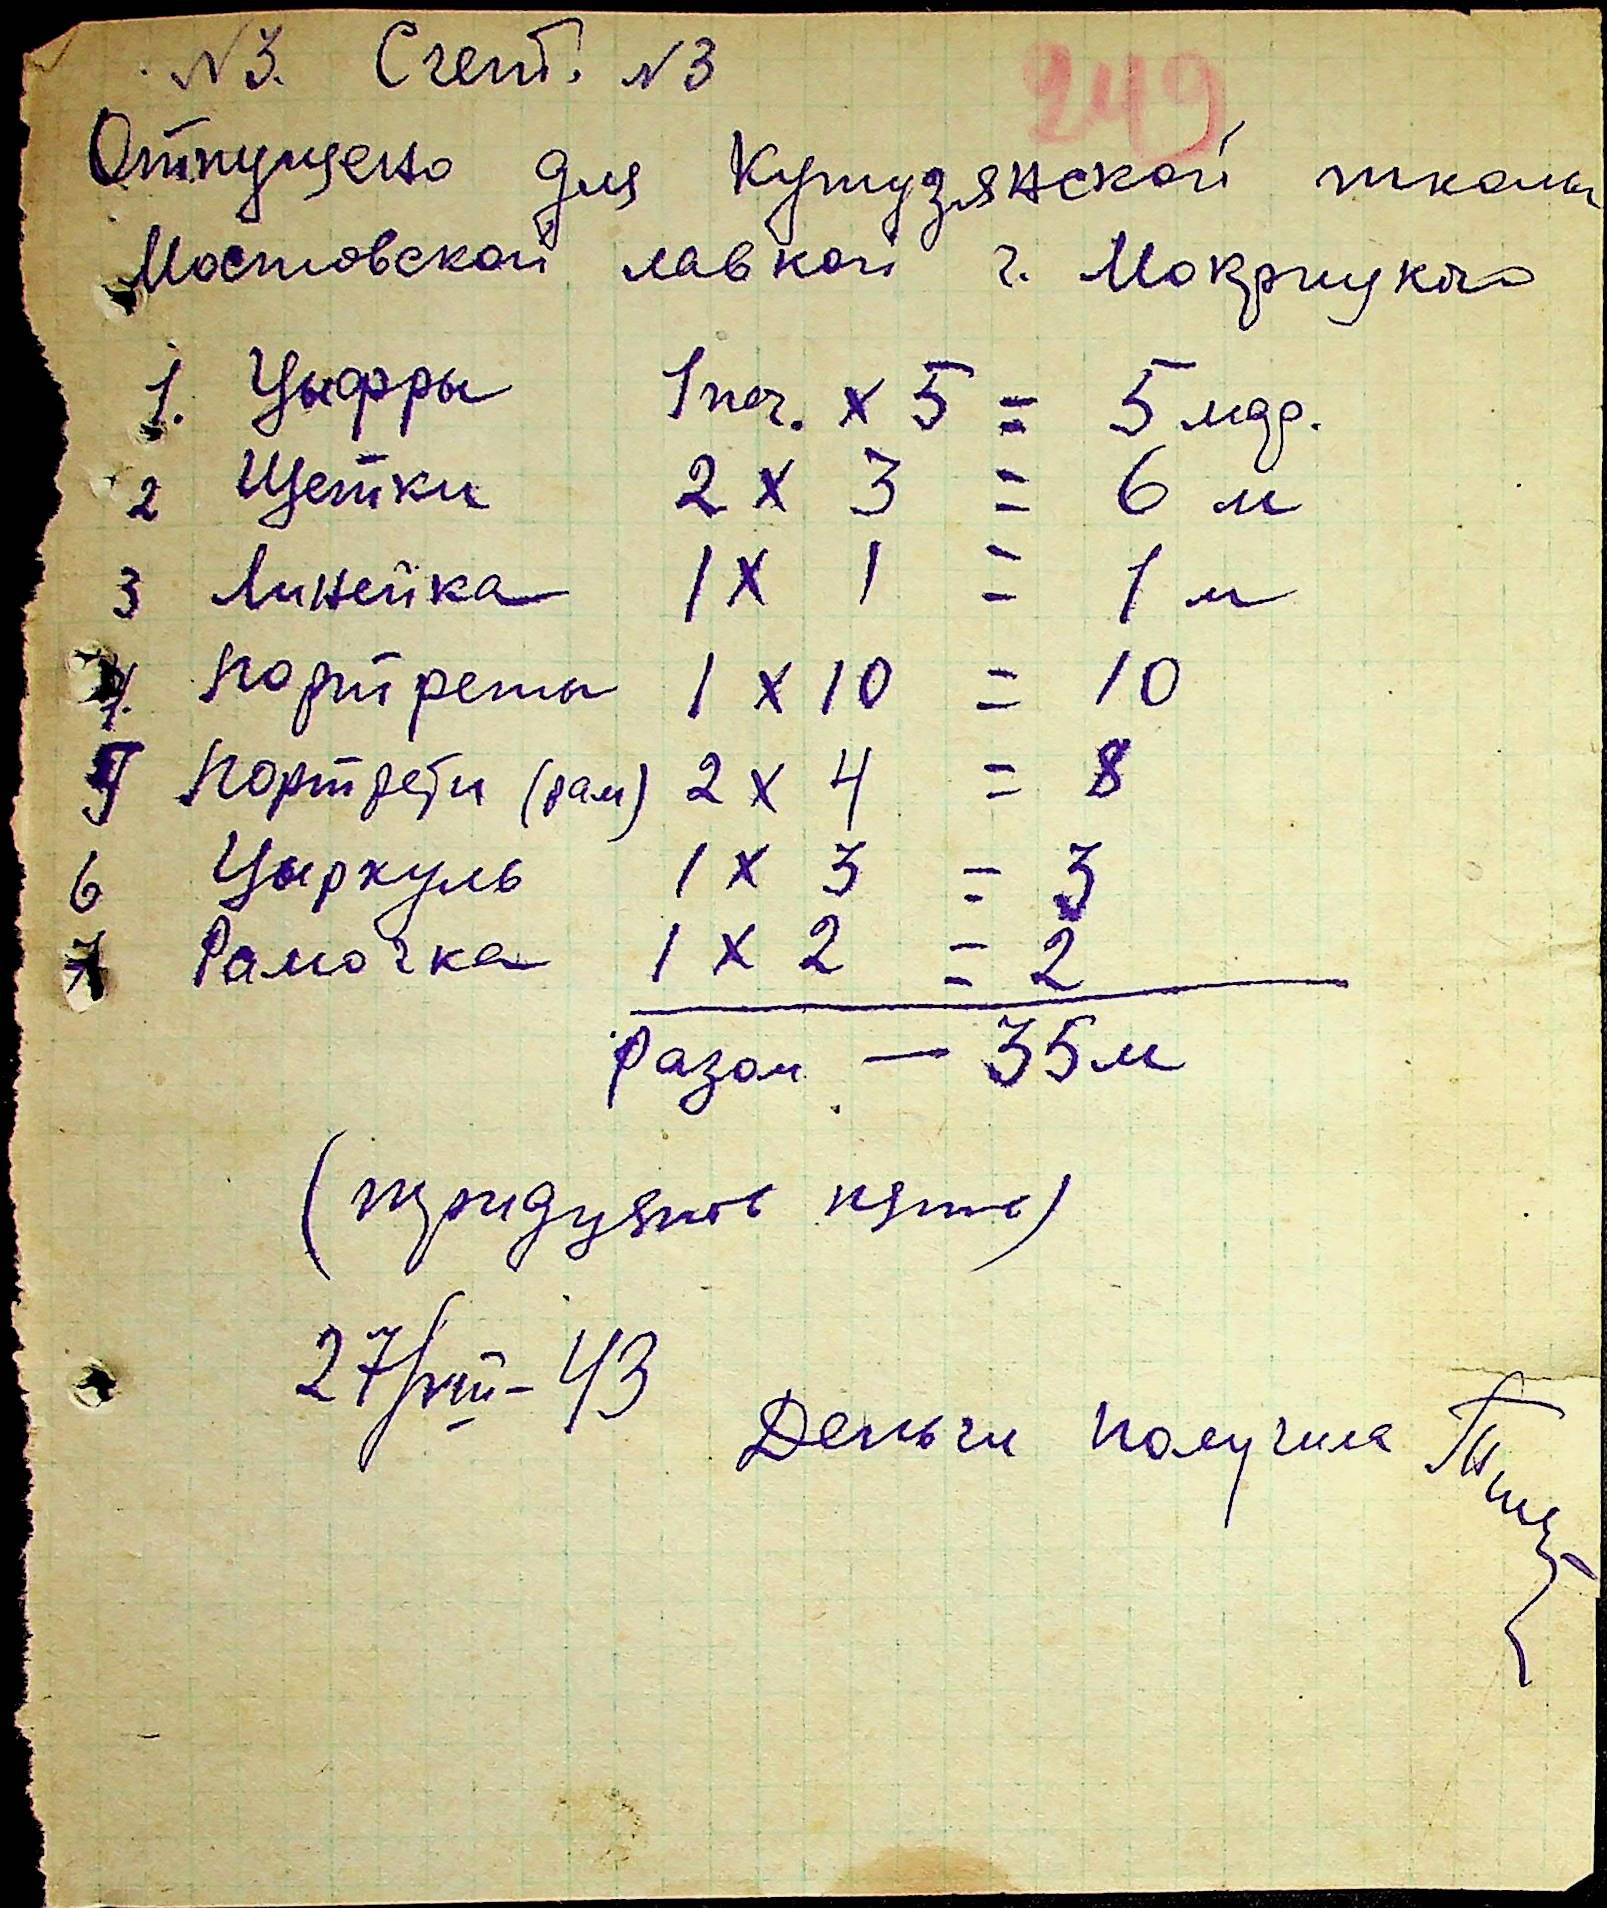 N3. Счет. N3
249
Отпущено для Кутузянской школы
Мостовской лавкой г. Мокрицкого
1. Цыфры 1 пач. x 5 = 5 мар.
2 Щетки 2 x 3 = 6 м
3 Линейка 1 x 1 = 1 м
4. Портреты 1 x 10 = 10
5 Портрети (рам) 2 x 4 = 8
6 Цыркуль 1 x 3 = 3
7 Рамочка 1 x 2 = 2
Разом — 35 м
(тридцять пять)
27/VIII - 43
Деньги получила